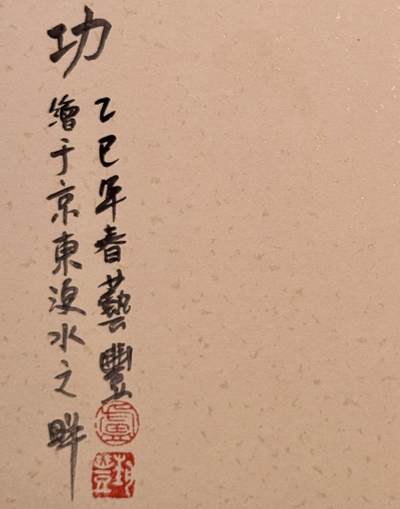 功
乙巳年春藝豐
盧
繪于京東浭水之畔